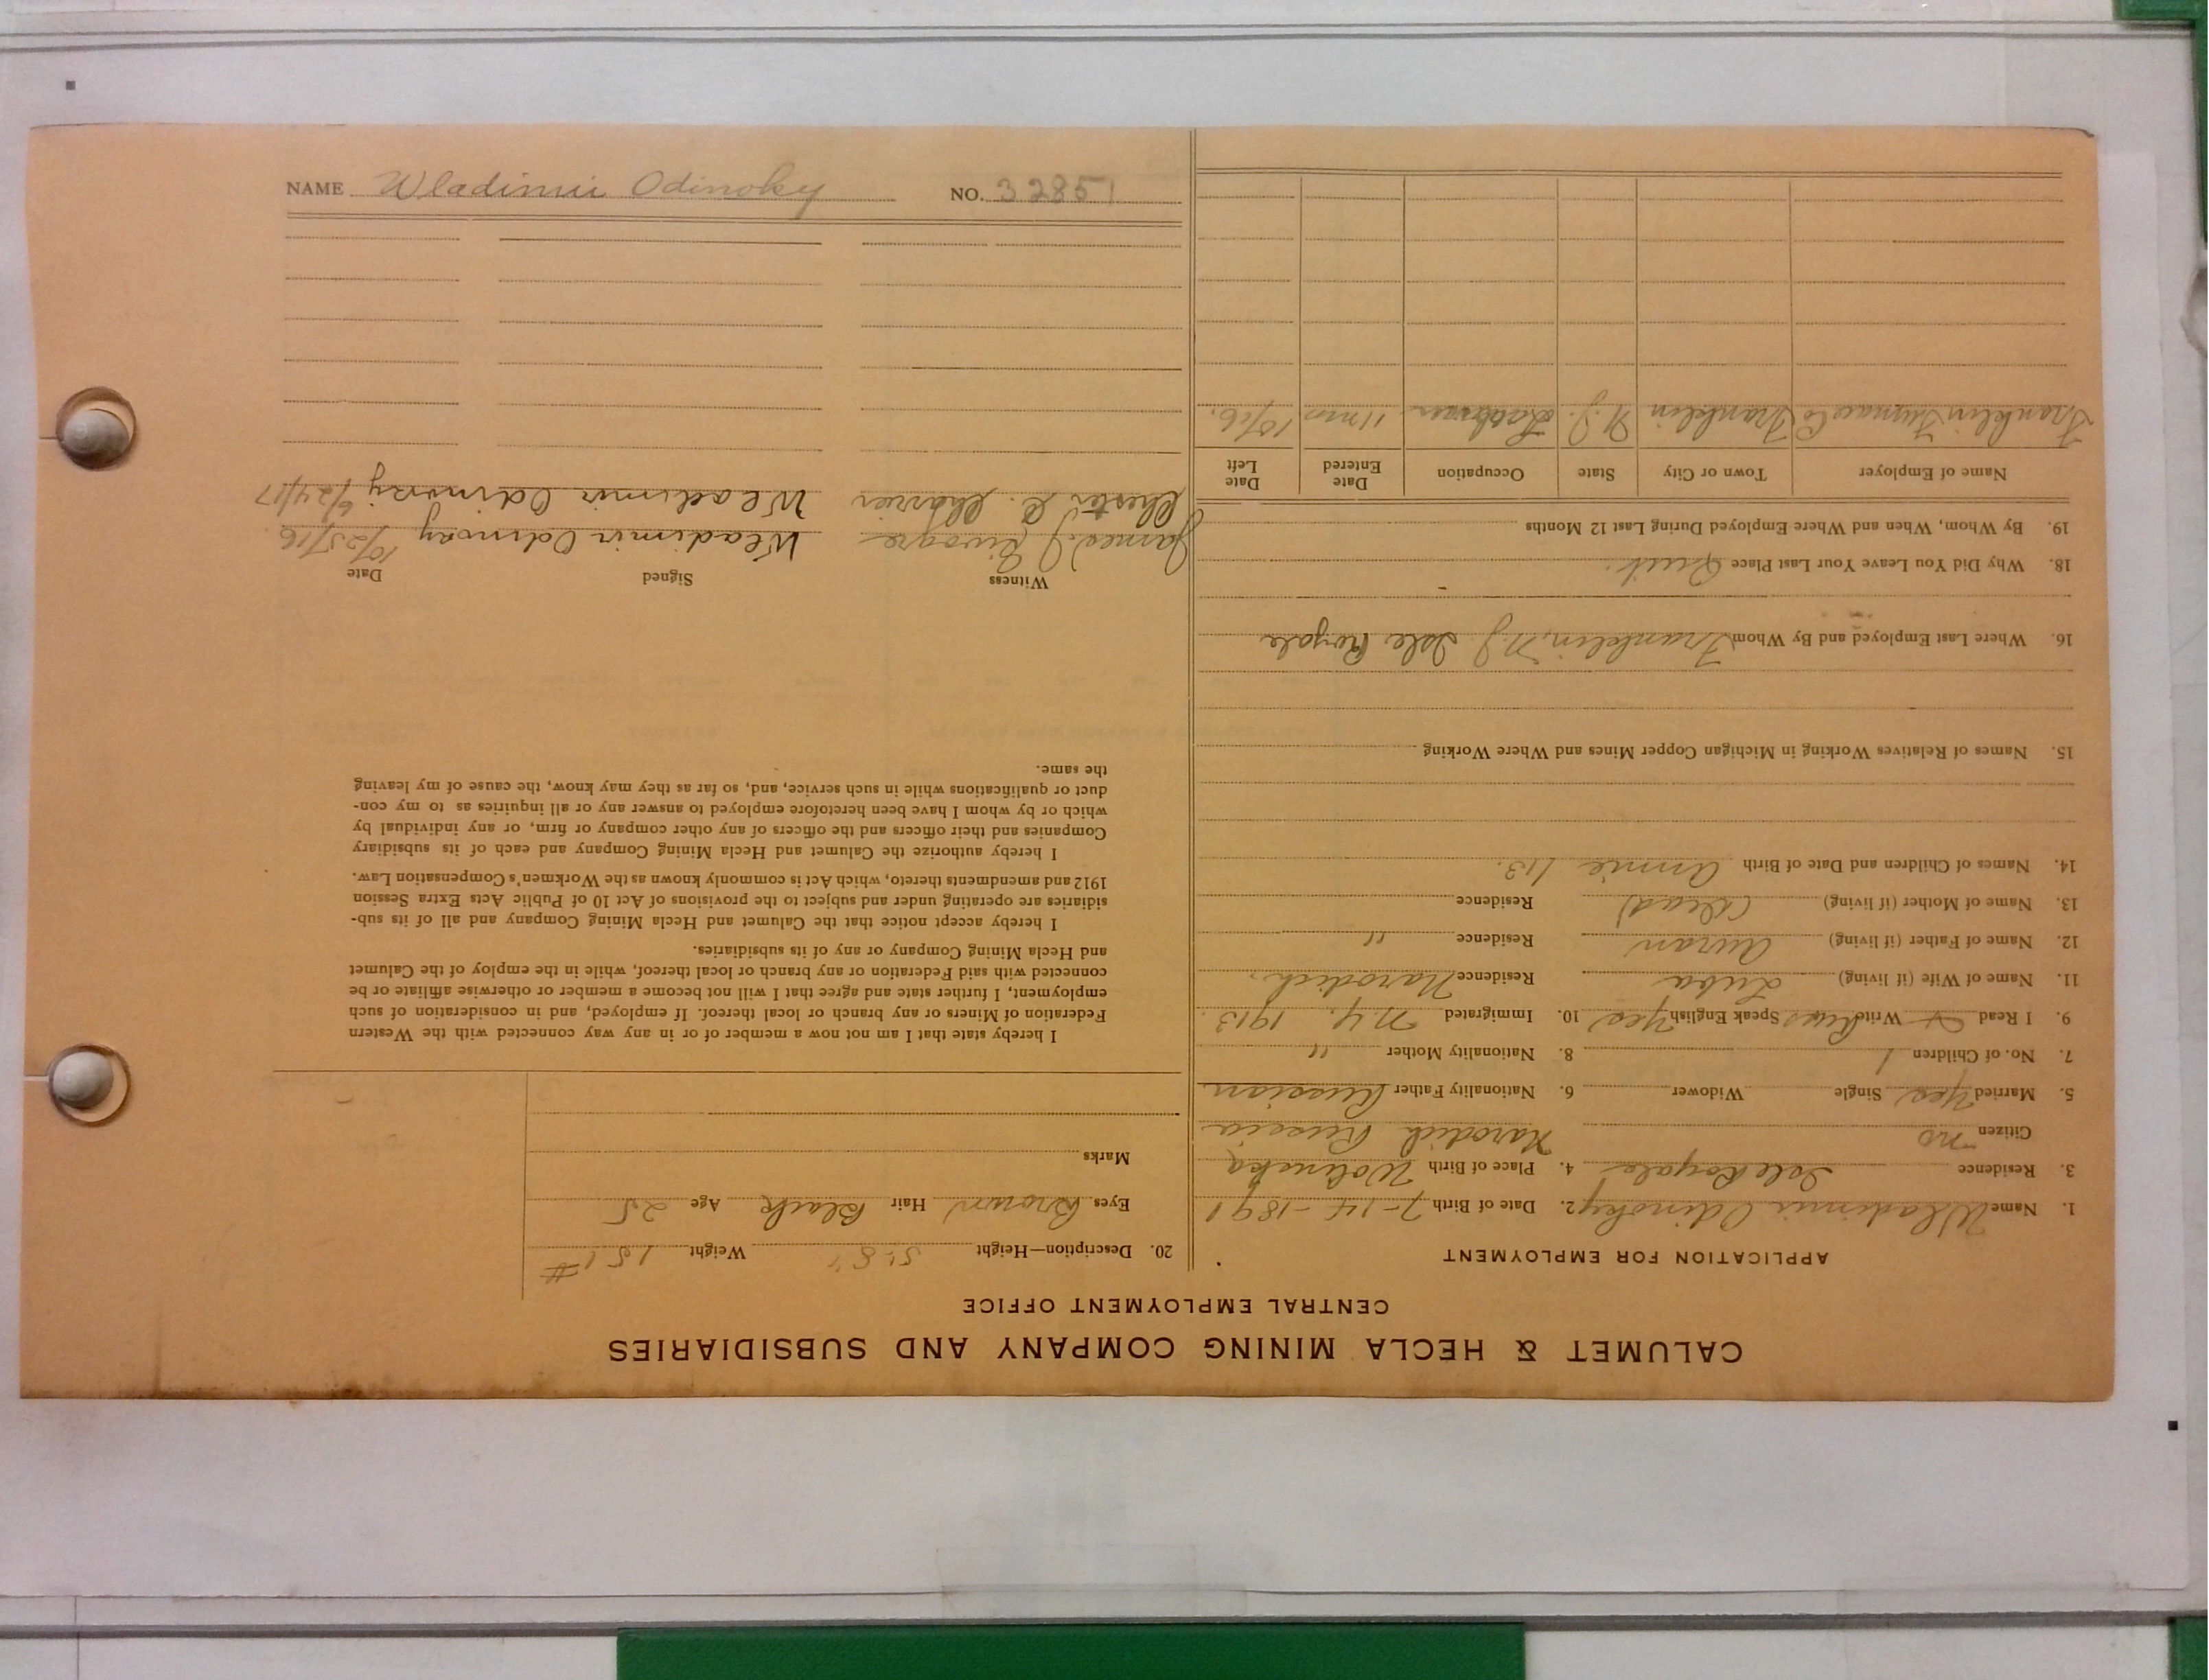 NAME Wladimir Odinoky NO. 32851
CALUMET & HECLA MINING COMPANY AND SUBSIDIARIES
CENTRAL EMPLOYMENT OFFICE
APPLICATION FOR EMPLOYMENT
1. Name Wladimir Odinoky 2. Date of Birth 7-14-1891
3. Residence Isle Royale 4. Place of Birth Wolinska
Citizen no Narodich Russia
5. Married Yes Single Widower 6. Nationality Father Russian
7. No. of Children 1 8. Nationality Mother "
9. I Read Write Russ Speak English Yes 10. Immigrated N.Y. 1913
11. Name of Wife (if living) Luba Residence Narodich
12. Name of Father (if living) Residence "
13. Name of Mother (if living) (Dead) Residence
14. Names of Children and Date of Birth Annie 1/13.
15. Names of Relatives Working in Michigan Copper Mines and Where Working
16. Where Last Employed and By Whom Franklin, N.J. Isle Royale
18. Why Did You Leave Your Last Place Quit.
19. By Whom, When and Where Employed During Last 12 Months
Name of Employer Town or City State Occupation Date Entered Date Left
Franklin Furnace Co Franklin N.J. 11 mos 10/16.
20. Description—Height 5'8" Weight 151 #
Eyes Brown Hair Black Age 25
Marks
I hereby state that I am not now a member of or in any way connected with the Western
Federation of Miners or any branch or local thereof. If employed, and in consideration of such
employment, I further state and agree that I will not become a member or otherwise affiliate or be
connected with said Federation or any branch or local thereof, while in the employ of the Calumet
and Hecla Mining Company or any of its subsidiaries.
I hereby accept notice that the Calumet and Hecla Mining Company and all of its sub-
sidiaries are operating under and subject to the provisions of Act 10 of Public Acts Extra Session
1912 and amendments thereto, which Act is commonly known as the Workmen's Compensation Law.
I hereby authorize the Calumet and Hecla Mining Company and each of its subsidiary
Companies and their officers and the officers of any other company or firm, or any individual by
which or by whom I have been heretofore employed to answer any or all inquiries as to my con-
duct or qualifications while in such service, and, so far as they may know, the cause of my leaving
the same.
Witness Signed Date
James J. Wladimir Odinoky 10/25/16.
Chester Wladimir Odinoky 6/24/17